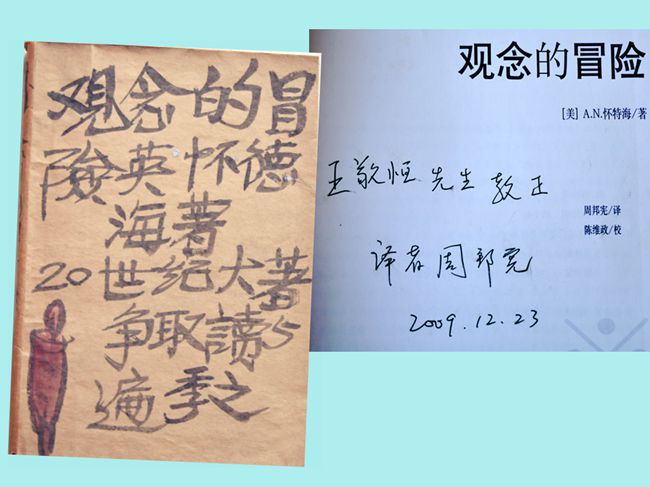 观念的冒
險英怀德
海著
20世纪大著
争取讀5
遍季之
观念的冒险
[美] A.N.怀特海/著
王敬恒先生教正
周邦宪/译
陈维政/校
译者周邦宪
2009.12.23